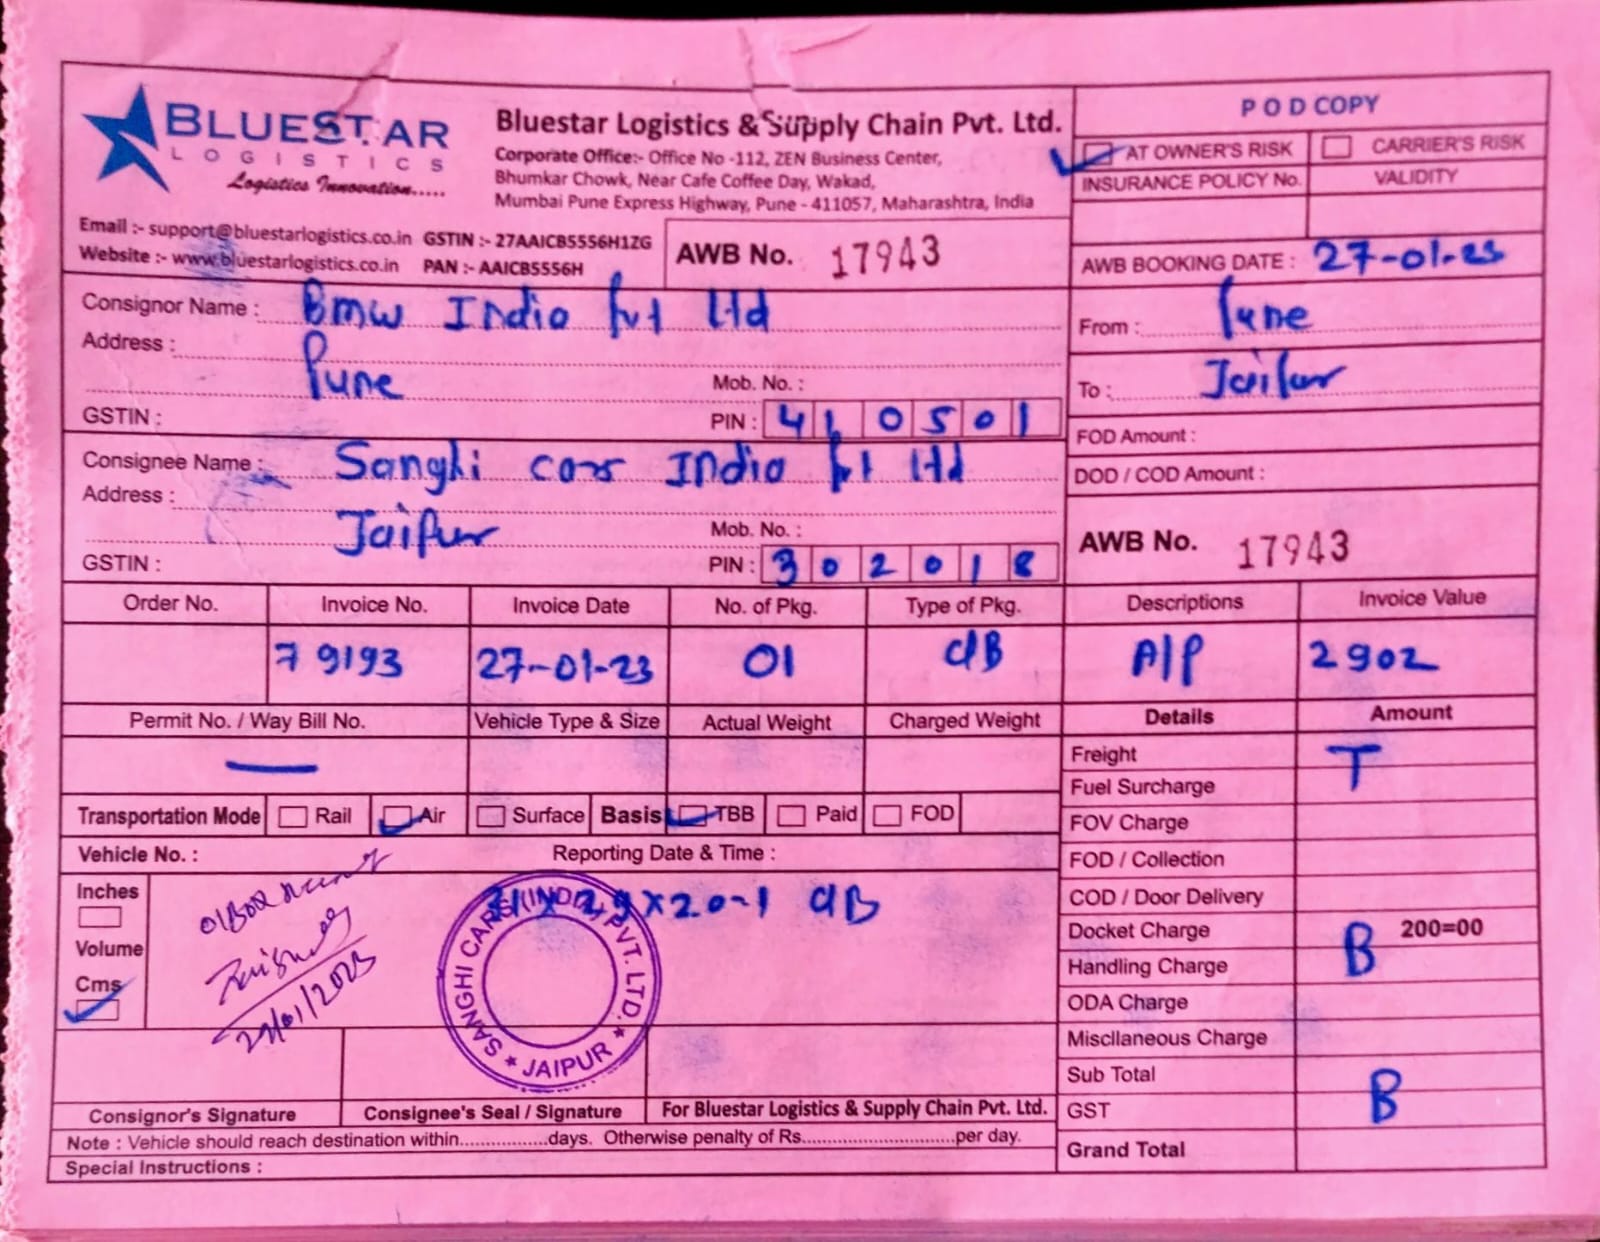 BLUESTAR
LOGISTICS
Logistics Innovation.....
Bluestar Logistics & Supply Chain Pvt. Ltd.
Corporate Office:- Office No -112, ZEN Business Center,
Bhumkar Chowk, Near Cafe Coffee Day, Wakad,
Mumbai Pune Express Highway, Pune - 411057, Maharashtra, India
POD COPY
AT OWNER'S RISK CARRIER'S RISK
INSURANCE POLICY No. VALIDITY
Email :- support@bluestarlogistics.co.in GSTIN :- 27AAICB5556H1ZG
Website :- www.bluestarlogistics.co.in PAN :- AAICB5556H
AWB No. 17943
AWB BOOKING DATE : 27-01-23
Consignor Name : Bmw India Pvt Ltd
Address :
Pune
Mob. No. :
GSTIN :
PIN : 410501
From : Pune
To : Jaipur
Consignee Name : Sanghi cars India Pvt Ltd
Address :
Jaipur
Mob. No. :
GSTIN :
PIN : 302018
FOD Amount :
DOD / COD Amount :
AWB No. 17943
Order No. Invoice No. Invoice Date No. of Pkg. Type of Pkg. Descriptions Invoice Value
79193 27-01-23 01 C/B A/P 2902
Permit No. / Way Bill No. Vehicle Type & Size Actual Weight Charged Weight Details Amount
Freight T
Fuel Surcharge
Transportation Mode Rail Air Surface Basis TBB Paid FOD
FOV Charge
Vehicle No. : Reporting Date & Time :
FOD / Collection
Inches
Volume
Cms
29x20-1 C/B
SANGHI CARS (INDIA) PVT. LTD.
★ JAIPUR ★
29/01/2023
COD / Door Delivery
Docket Charge B 200=00
Handling Charge
ODA Charge
Miscllaneous Charge
Sub Total
GST B
Grand Total
Consignor's Signature Consignee's Seal / Signature For Bluestar Logistics & Supply Chain Pvt. Ltd.
Note : Vehicle should reach destination within.................days. Otherwise penalty of Rs............................per day.
Special Instructions :